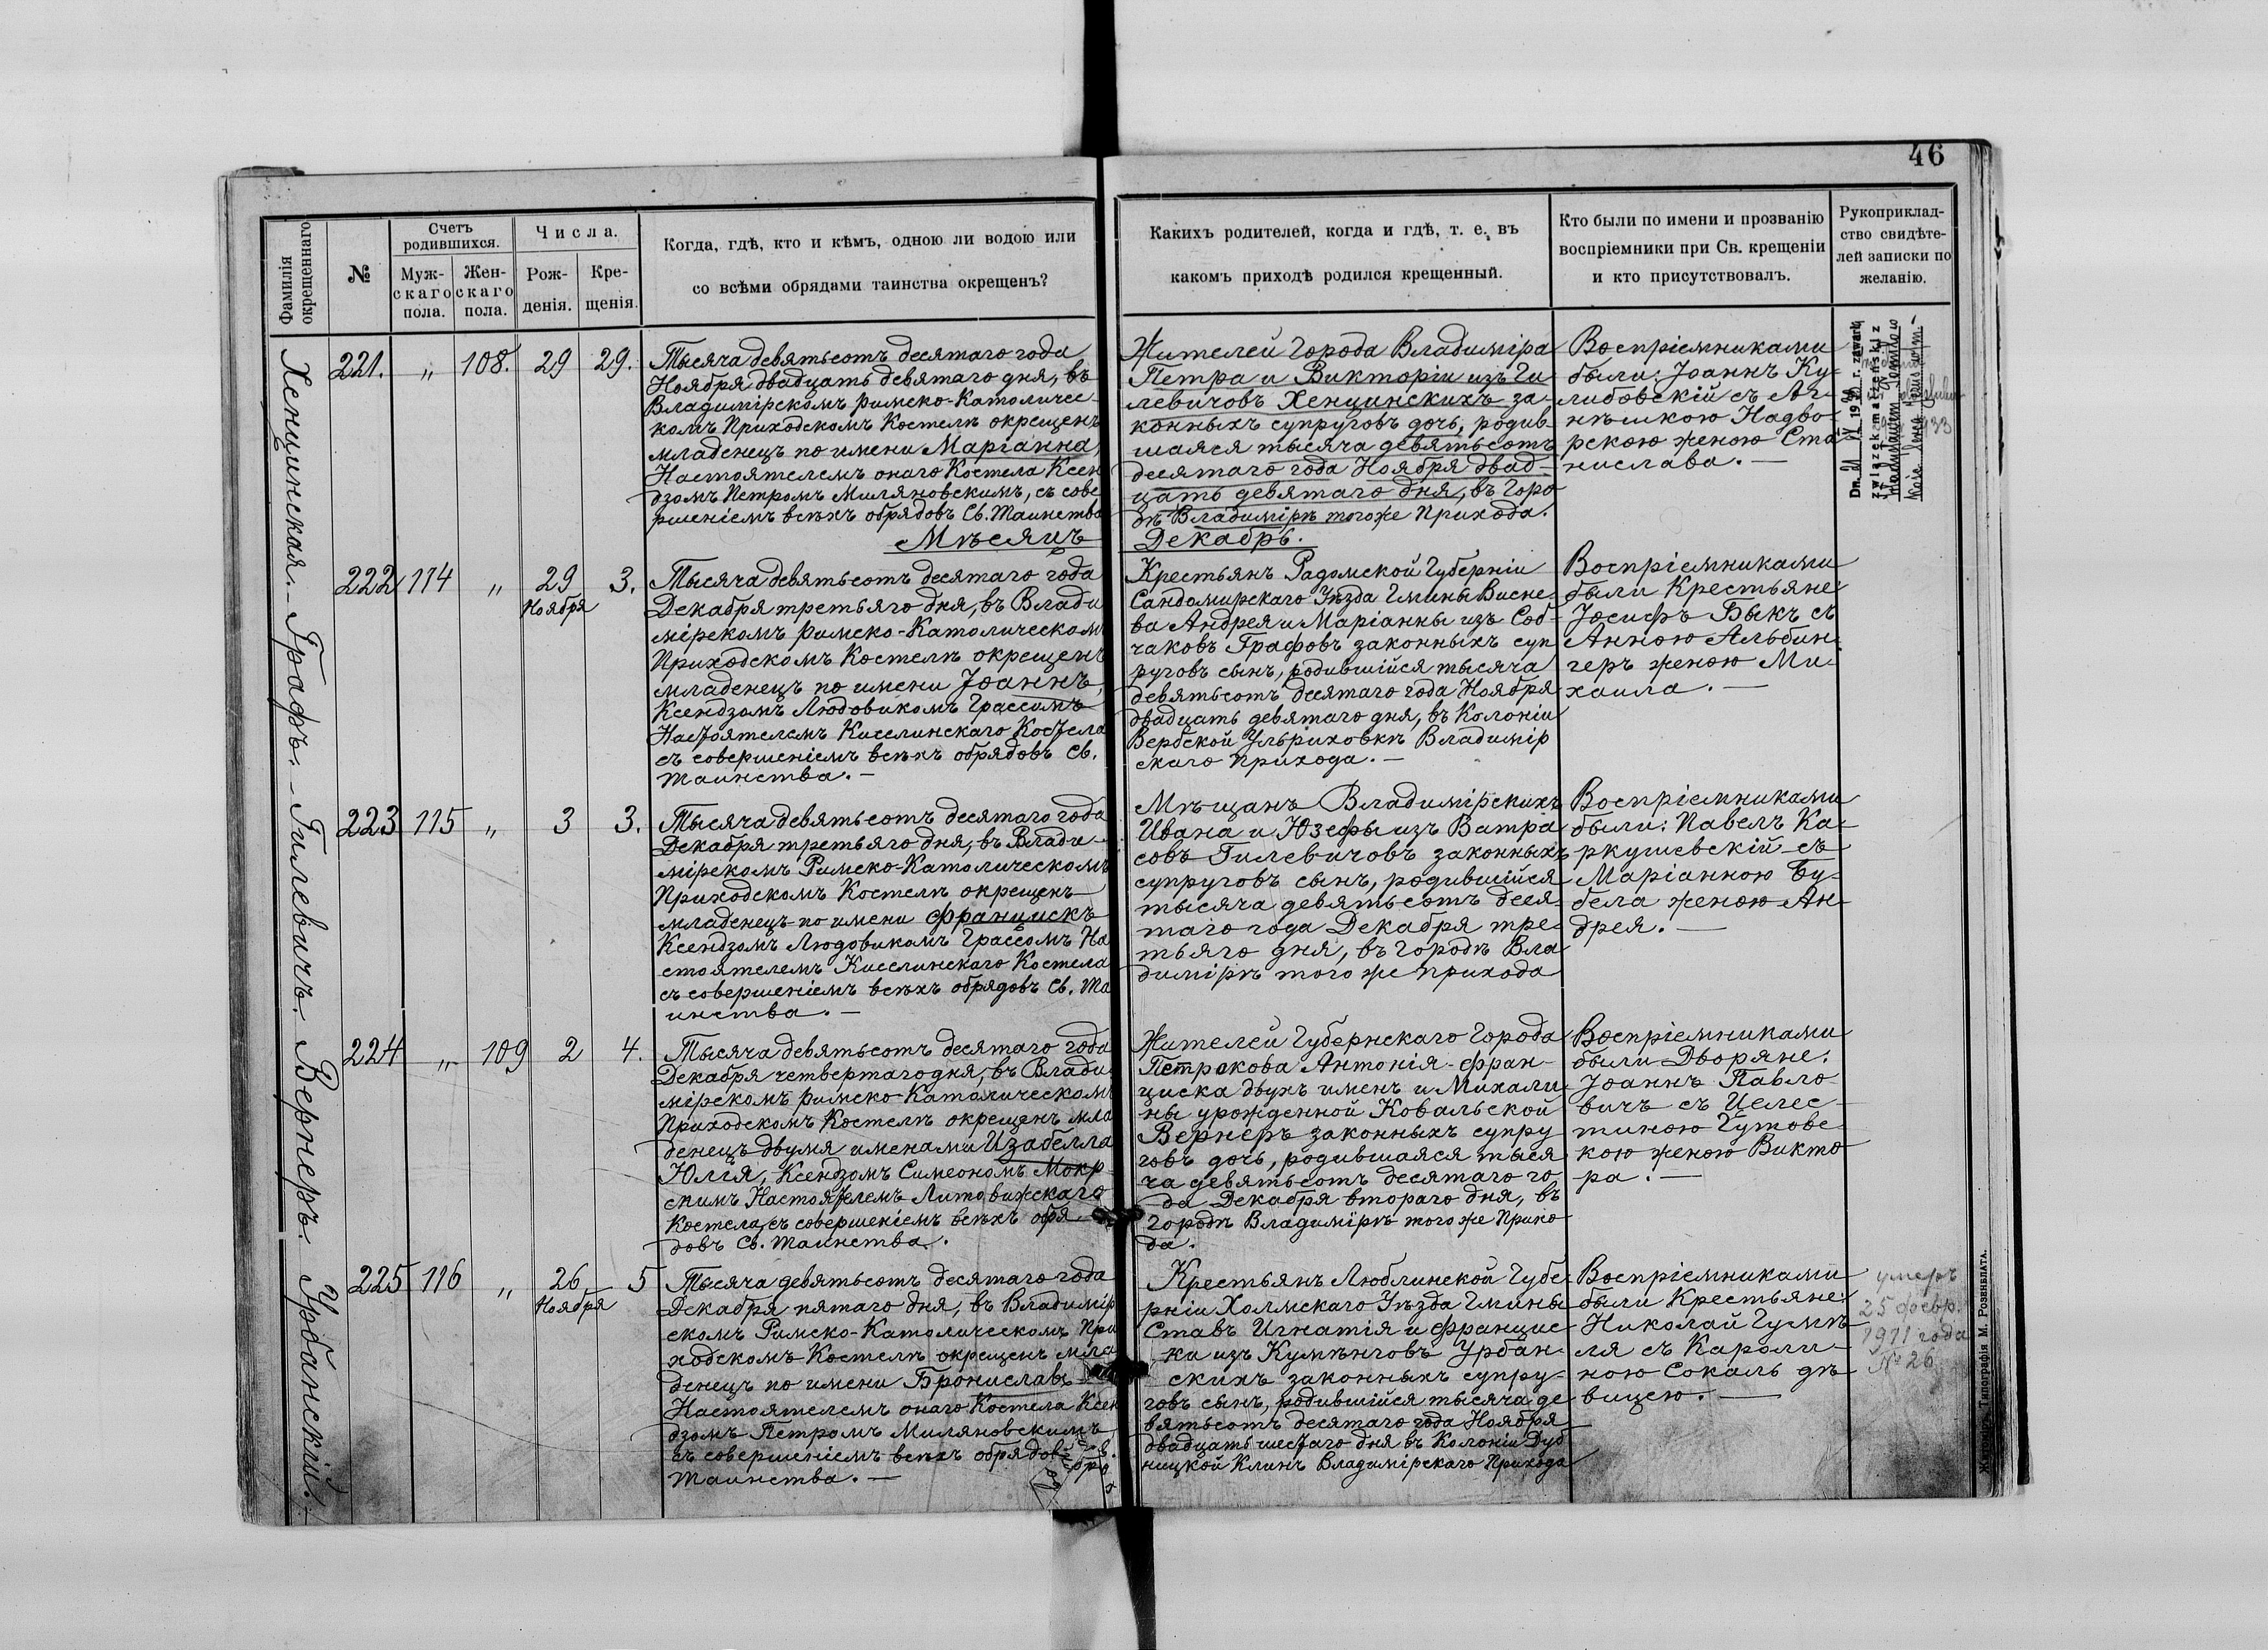 46
Фамилія окрещеннаго.
№
Счетъ родившихся.
Муж-
скаго
пола.
Жен-
скаго
пола.
Числа.
Рож-
денія.
Кре-
щенія.
Когда, гдѣ, кто и кѣмъ, одною ли водою или
со всѣми обрядами таинства окрещенъ?
Какихъ родителей, когда и гдѣ, т. е. въ
какомъ приходѣ родился крещенный.
Кто были по имени и прозванію
воспріемники при Св. крещеніи
и кто присутствовалъ.
Рукоприклад-
ство свидѣте-
лей записки по
желанію.
Хенцинская.
221. „ 108. 29 29.
Тысяча девятьсотъ десятаго года
Ноября двадцать девятаго дня, въ
Владимірскомъ римско-Католичес-
комъ Приходскомъ Костелѣ окрещенъ
младенецъ по имени Маріанна,
Настоятелемъ онаго Костела Ксен
дзомъ Петромъ Миляновскимъ, съ сове
ршеніемъ всѣхъ обрядовъ Св. Таинства
Жителей Города Владиміра
Петра и Викторіи изъ Ги
левичовъ Хенцинскихъ за-
конныхъ супруговъ дочь, родив-
шаяся тысяча девятьсотъ
десятаго года Ноября двад-
цать девятаго дня, въ Горо
дѣ Владимірѣ того же Прихода.
Воспріемниками
были: Іоаннъ Ку-
либовскій съ Аг-
нѣшкою Надво-
рскою женою Ста
нислава. —
Dn. 21 IV 19 r. zawarł
związek małżeński z
Мѣсяцъ Декабрь.
Графъ.
222 114 „ 29 Ноября 3.
Тысяча девятьсотъ десятаго года
Декабря третьяго дня, въ Влади
мірскомъ римско-Католическомъ
Приходскомъ Костелѣ окрещенъ
младенецъ по имени Іоаннъ,
Ксендзомъ Людовикомъ Грассомъ
Настоятелемъ Киселинскаго Костела
съ совершеніемъ всѣхъ обрядовъ Св.
Таинства. —
Крестьянъ Радомской Губерніи
Сандомирскаго Уѣзда Гмины Висне
ва Андрея и Маріанны изъ Соб-
чаковъ Графовъ законныхъ суп
руговъ сынъ, родившійся тысяча
девятьсотъ десятаго года Ноября
двадцать девятаго дня, въ Колоніи
Вербской Ульриховкѣ Владимір
скаго Прихода. —
Воспріемниками
были Крестьяне:
Іосифъ Быкъ съ
Анною Альбин
геръ женою Ми-
хаила. —
Гилевичъ.
223 115 „ 3 3.
Тысяча девятьсотъ десятаго года
Декабря третьяго дня, въ Влади-
мірскомъ Римско-Католическомъ
Приходскомъ Костелѣ окрещенъ
младенецъ по имени Францискъ
Ксендзомъ Людовикомъ Грассомъ На
стоятелемъ Киселинскаго Костела
съ совершеніемъ всѣхъ обрядовъ Св. Та
инства. —
Мѣщанъ Владимірскихъ
Ивана и Юзефы изъ Ватра
совъ Гилевичовъ законныхъ
супруговъ сынъ, родившійся
тысяча девятьсотъ деся
таго года Декабря тре-
тьяго дня, въ городѣ Вла
димірѣ того же прихода
Воспріемниками
были: Павелъ Ка-
ркушевскій съ
Маріанною Бу-
бела женою Ан-
дрея. —
Вернеръ.
224 „ 109 2 4.
Тысяча девятьсотъ десятаго года
Декабря четвертаго дня, въ Влади
мірскомъ римско-Католическомъ
Приходскомъ Костелѣ окрещенъ мла
денецъ двумя именами Изабелла
Юлія, Ксендзомъ Симеономъ Мокр-
скимъ Настоятелемъ Литовижскаго
Костела, съ совершеніемъ всѣхъ обря
довъ Св. Таинства.
Жителей Губернскаго Города
Петрокова Антонія-Фран-
циска двухъ именъ и Михали
ны урожденной Ковальской
Вернеръ законныхъ супру
говъ дочь, родившаяся тыся
ча девятьсотъ десятаго го-
да Декабря втораго дня, въ
городѣ Владимірѣ того же Прихо
да.
Воспріемниками
были Дворяне:
Іоаннъ Павло-
вичъ съ Целес-
тиною Гутовс
кою женою Викто
ра. —
Урбанскій.
225 116 „ 26 Ноября 5
Тысяча девятьсотъ десятаго года
Декабря пятаго дня, въ Владимір
скомъ Римско-Католическомъ При
ходскомъ Костелѣ окрещенъ мла
денецъ по имени Брониславъ
Настоятелемъ онаго Костела Ксен
дзомъ Петромъ Миляновскимъ
съ совершеніемъ всѣхъ обрядовъ Св.
Таинства. —
Крестьянъ Люблинской Губе
рніи Холмскаго Уѣзда Гмины
Ставъ Игнатія и Францис
ки изъ Кумѣнговъ Урбан-
скихъ законныхъ супру-
говъ сынъ, родившійся тысяча де
вятьсотъ десятаго года Ноября
двадцать шестаго дня въ Колоніи Дуб
ницкой Клинъ Владимірскаго Прихода
Воспріемниками
были Крестьяне:
Николай Гумѣ
ля съ Кароли-
ною Сокаль дѣ
вицею. —
умеръ
25 февр.
1911 года
№ 26
Типографія М. Розенблата.